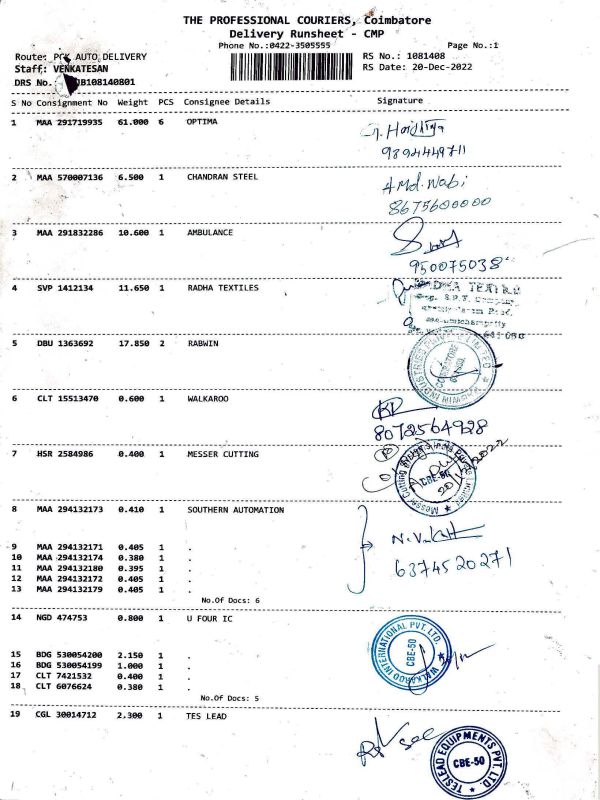 THE PROFESSIONAL COURIERS, Coimbatore
Delivery Runsheet - CMP
Phone No.:0422-3505555 Page No.:1
Route: PCK AUTO DELIVERY RS No.: 1081408
Staff: VENKATESAN RS Date: 20-Dec-2022
DRS No. B108140801
S No Consignment No Weight PCS Consignee Details Signature
1 MAA 291719935 61.000 6 OPTIMA
9894449711
2 MAA 570007136 6.500 1 CHANDRAN STEEL
A Md. Nabi
8675600000
3 MAA 291832286 10.600 1 AMBULANCE
950075038
4 SVP 1412134 11.650 1 RADHA TEXTILES
RADHA TEXTILE
5 DBU 1363692 17.850 2 RABWIN
RABWIN INDUSTRIES PRIVATE LIMITED
COIMBATORE
6 CLT 15513470 0.600 1 WALKAROO
8072564928
7 HSR 2584986 0.400 1 MESSER CUTTING
CBE-50
20/12/2022
8 MAA 294132173 0.410 1 SOUTHERN AUTOMATION
9 MAA 294132171 0.405 1 .
10 MAA 294132174 0.380 1 .
11 MAA 294132180 0.395 1 .
12 MAA 294132172 0.405 1 .
13 MAA 294132179 0.405 1 .
6374520271
No.Of Docs: 6
14 NGD 474753 0.800 1 U FOUR IC
WALKAROO INTERNATIONAL PVT. LTD.
CBE-50
15 BDG 530054200 2.150 1 .
16 BDG 530054199 1.000 1 .
17 CLT 7421532 0.400 1 .
18 CLT 6076624 0.380 1 .
No.Of Docs: 5
19 CGL 30014712 2.300 1 TES LEAD
TESLEAD EQUIPMENTS PVT. LTD.
CBE-50